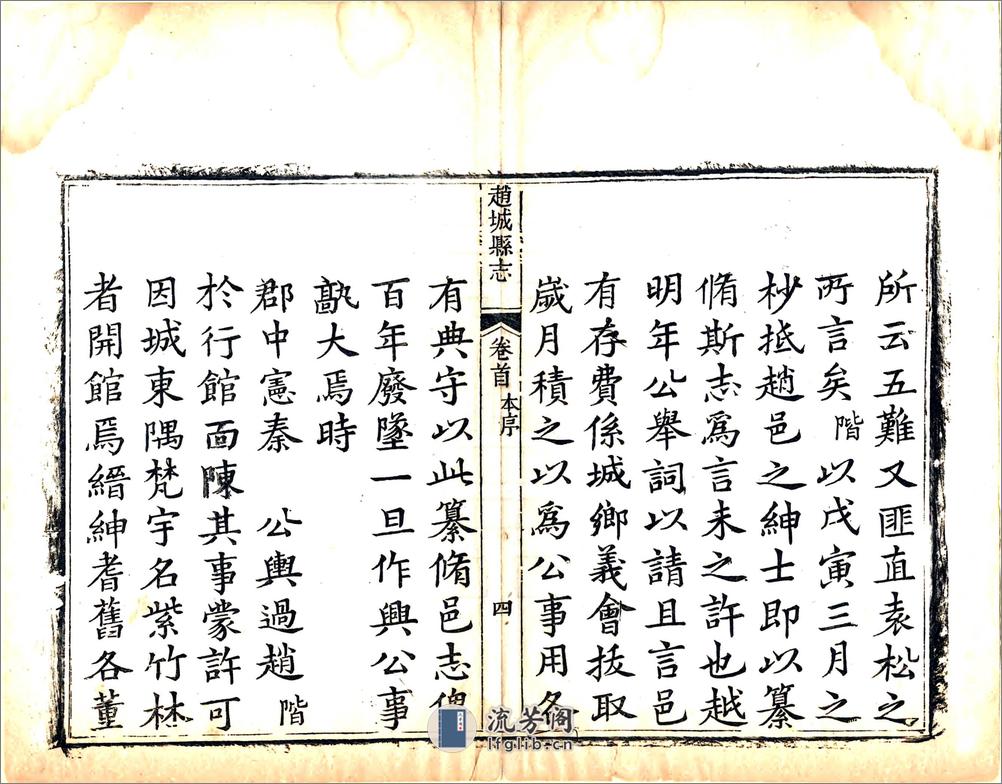 所云五難又匪直袁松之
所言矣階以戊寅三月之
杪抵趙邑之紳士即以纂
脩斯志爲言未之許也越
明年公舉詞以請且言邑
有存費係城鄉義會拔取
歲月積之以爲公事用各
趙城縣志
卷首
本序
四
有典守以此纂脩邑志俾
百年廢墜一旦作興公事
孰大焉時
郡中憲秦 公輿過趙階
於行館面陳其事蒙許可
因城東隅梵宇名紫竹林
者開館焉縉紳耆舊各董
流芳阁
lfglib.cn